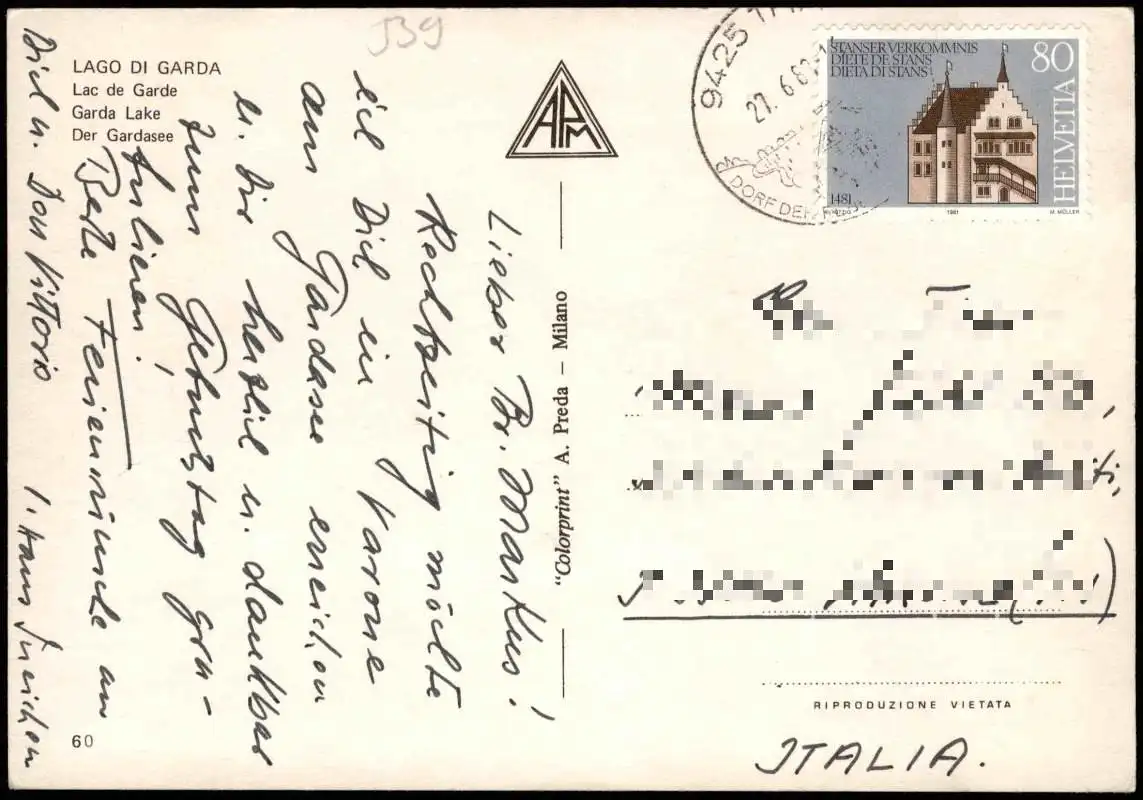 LAGO DI GARDA
Lac de Garde
Garda Lake
Der Gardasee
539
9425
27. 6.
DORF DER
STANSER VERKOMMNIS
DIETE DE STANS
DIETA DI STANS
80
HELVETIA
1481
1981
M. MÜLLER
APM
"Colorprint" A. Preda – Milano
Lieber Br. Markus!
Rechtzeitig möchte
ich Dich in Varone
am Gardasee erreichen
u. Dir herzlich u. dankbar
zum Geburtstag gra-
tulieren!
Beste Ferienwünsche an
Dich u. Don Vittorio
ITALIA.
RIPRODUZIONE VIETATA
60